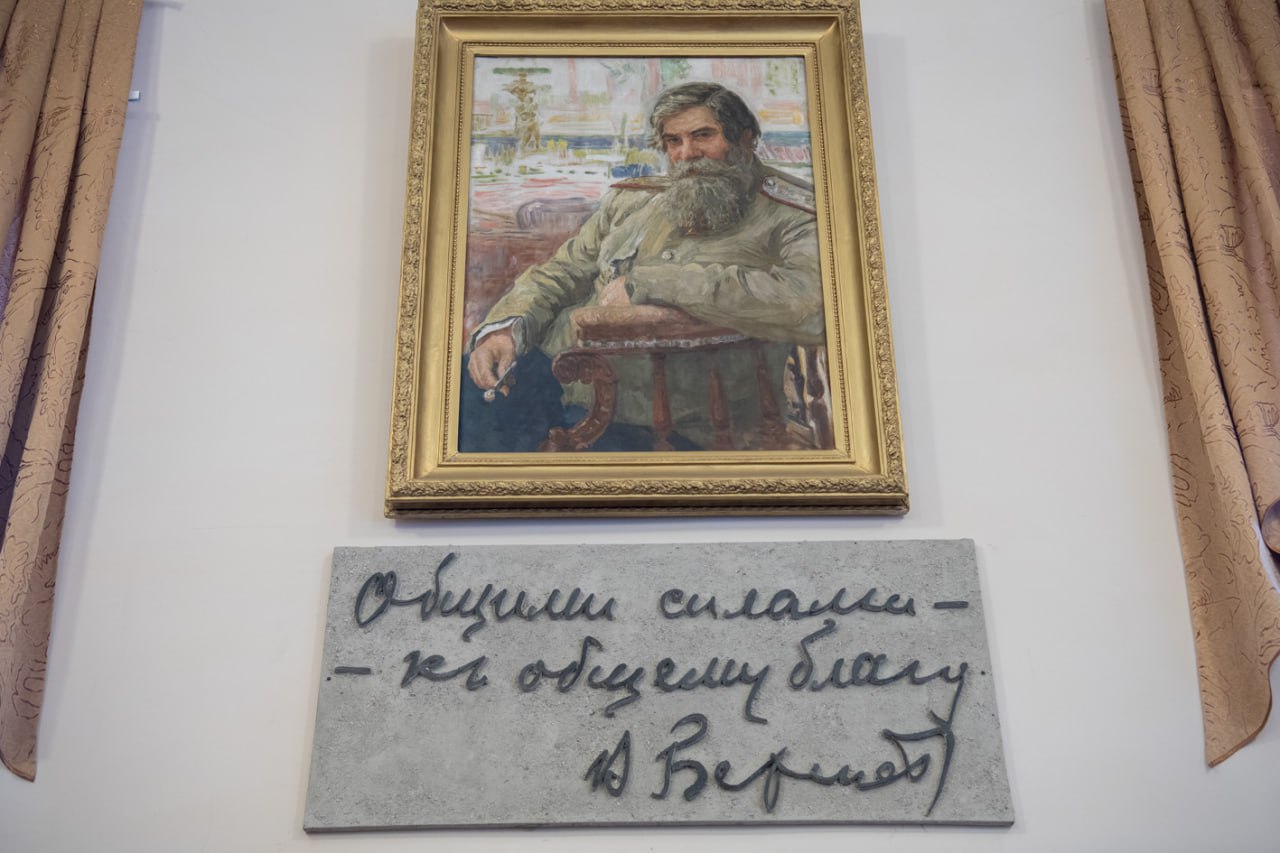 Общими силами –
– къ общему благу.
В Бехтерев